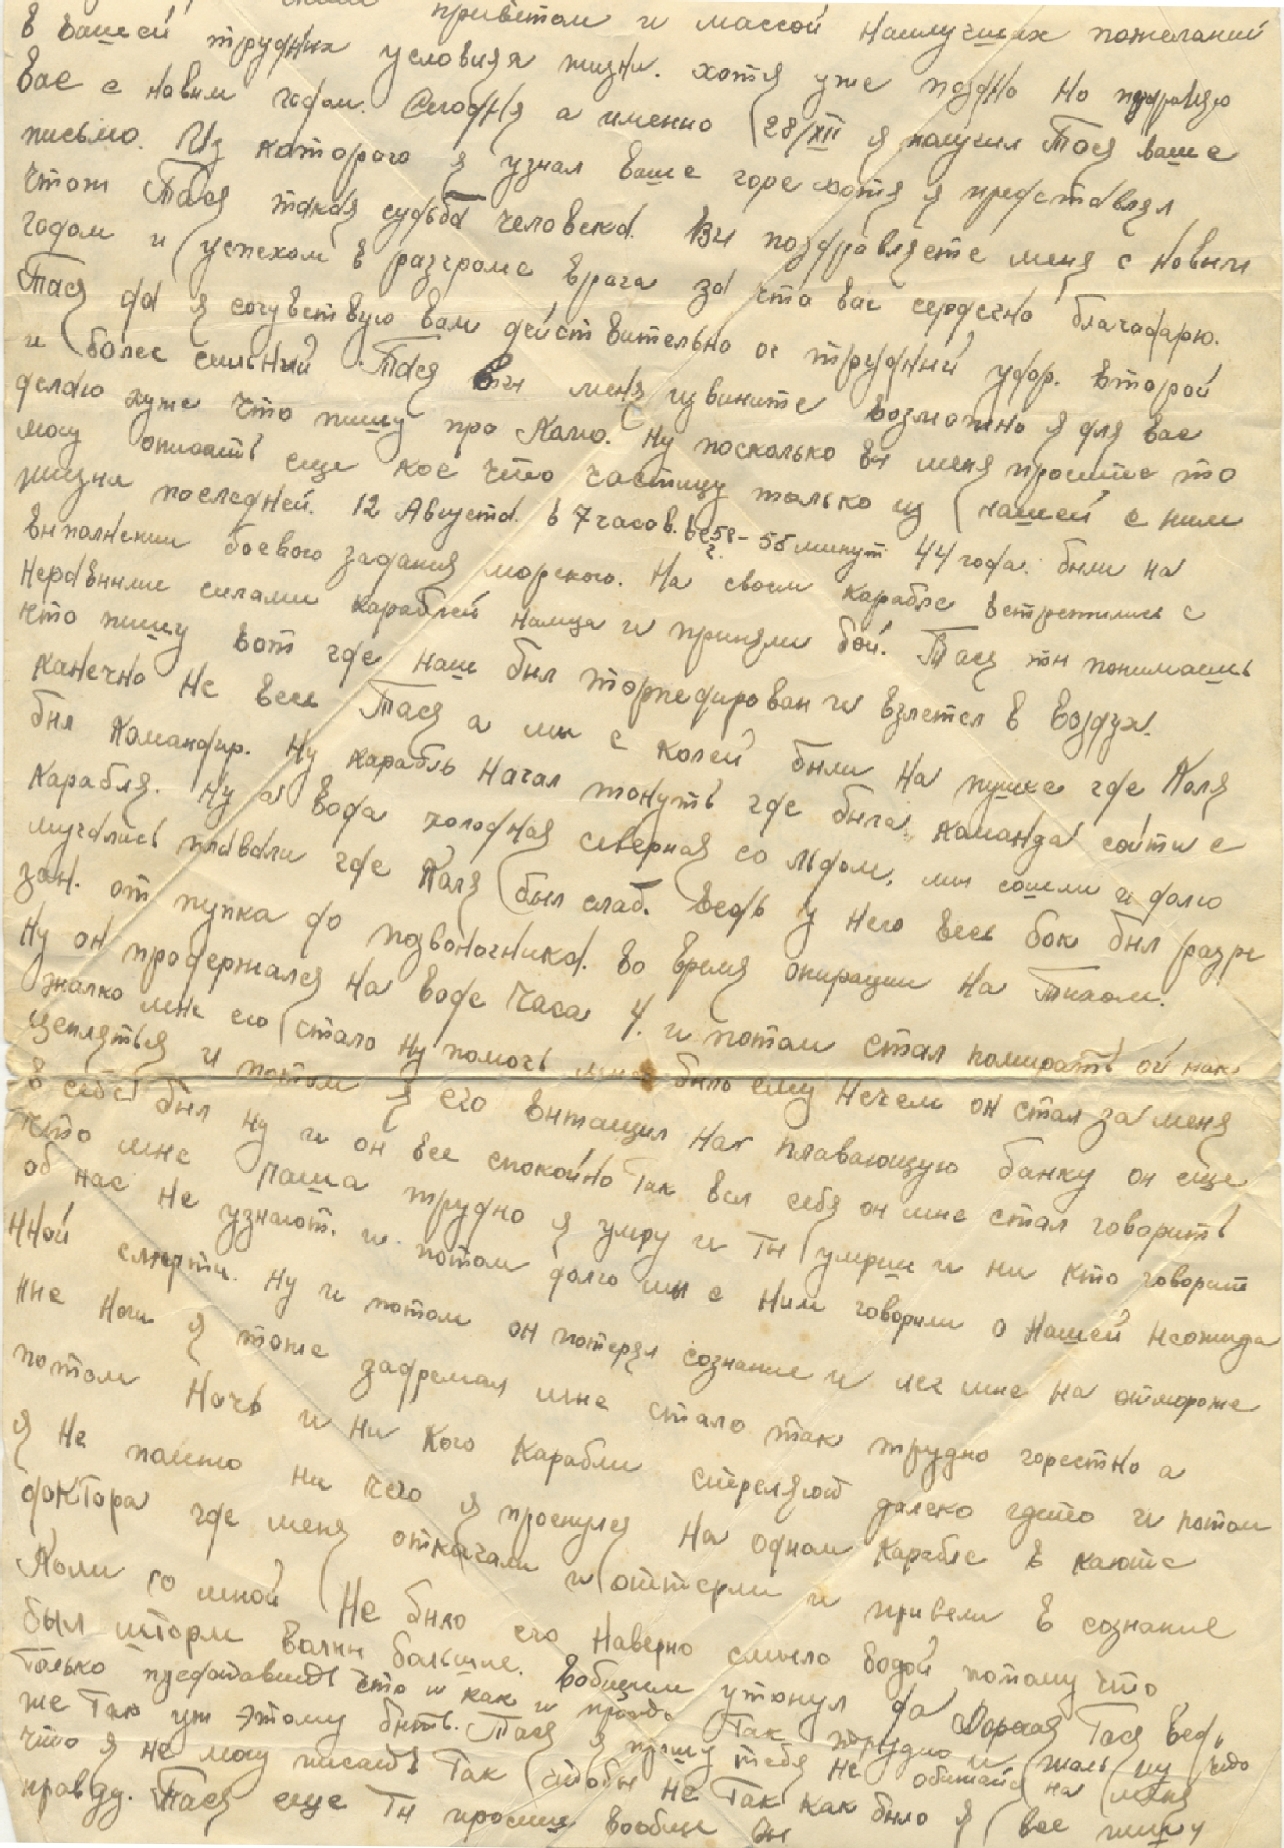 приветом и массой наилучших пожеланий
в вашей трудных условия жизни. хотя уже поздно но поздравляю
вас с новым годом. Сегодня а именно (28/XII я получил Тося ваше
письмо. Из которого я узнал ваше горе хотя я представлял
чтож Тося такая судьба человека. Вы поздравляете меня с новым
годом и успехом в разгроме врага за что вас сердечно благодарю.
Тася да я сочувствую вам действительно ос трудный удар. второй
и более сильный. Тася вы меня извините возможно я для вас
делаю хуже что пишу про Колю. Ну посколько вы меня просите то
могу описать еще кое что частицу только из нашей с ним
жизни последней. 12 Августа. в 7 часов. веч. - 55 минут 44 года. были на
выполнении боевого задания морского. На своем карабле встретились с
неравными силами караблей немца и приняли бой. Тася ты понимаешь
что пишу вот где наш был торпедирован и взлетел в воздух.
канечно не весь Тася а мы с колей были на пушке где Коля
был Командир. Ну карабль начал тонуть где была команда сойти с
карабля. Ну а вода холодная северная со льдом. мы сошли и долго
мучались плавали где Коля был слаб. ведь у него весь бок был разре
зан. от пупка до позвоночника. во время опирации на Тихом.
Ну он продержался на воде часа 4. и потом стал помирать ой как
жалко мне его стало ну помочь мне было ему нечем он стал за меня
цепляться и потом я его вытащил на плавающую банку он еще
в себе был ну и он все спокойно так вел себя он мне стал говорить
что мне паша трудно я умру и ты умрш и ни кто говорит
об нас не узнают. и потом долго мы с ним говорили о нашей неожида
нной смерти. Ну и потом он потерял сознание и лег мне на отмороже
нне ноги я тоже задремал мне стало так трудно горестно а
потом Ночь и ни кого карабли стреляют далеко гдето и потом
я не помню ни чего я проснулся на одном карабле в каюте
доктора где меня откачали и оттерли и привели в сознание
Коли со мной не было его наверно смыло водой потому что
был шторм валны большие. вобщем утонул да Дорогая Тася ведь
только представить что и как и правда так трудно и жаль ну что
же так уж этому быть. Тася я прошу тебя не обижайся на меня
что я не могу писать так чтобы не так как было я все пишу
правду. Тася еще ты просиш вообще